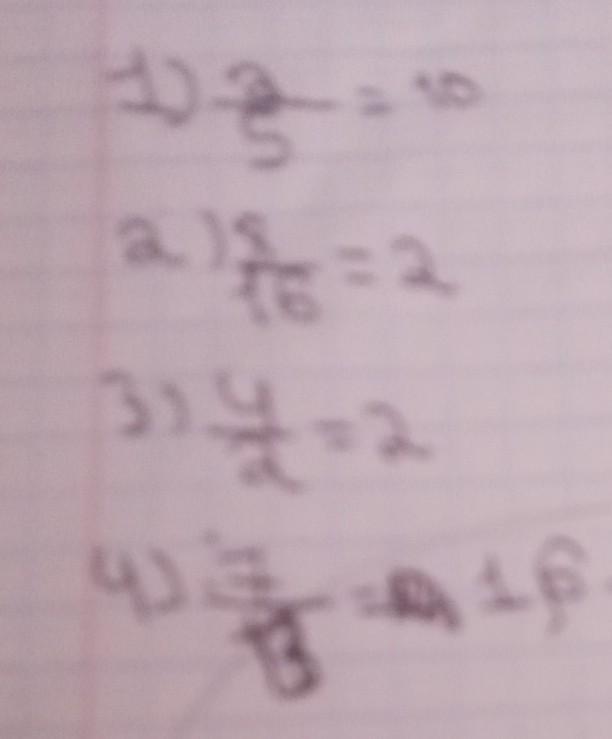 1) 2/5 = 10
2) 5/16 = 2
3) 4/2 = 2
4) = 16